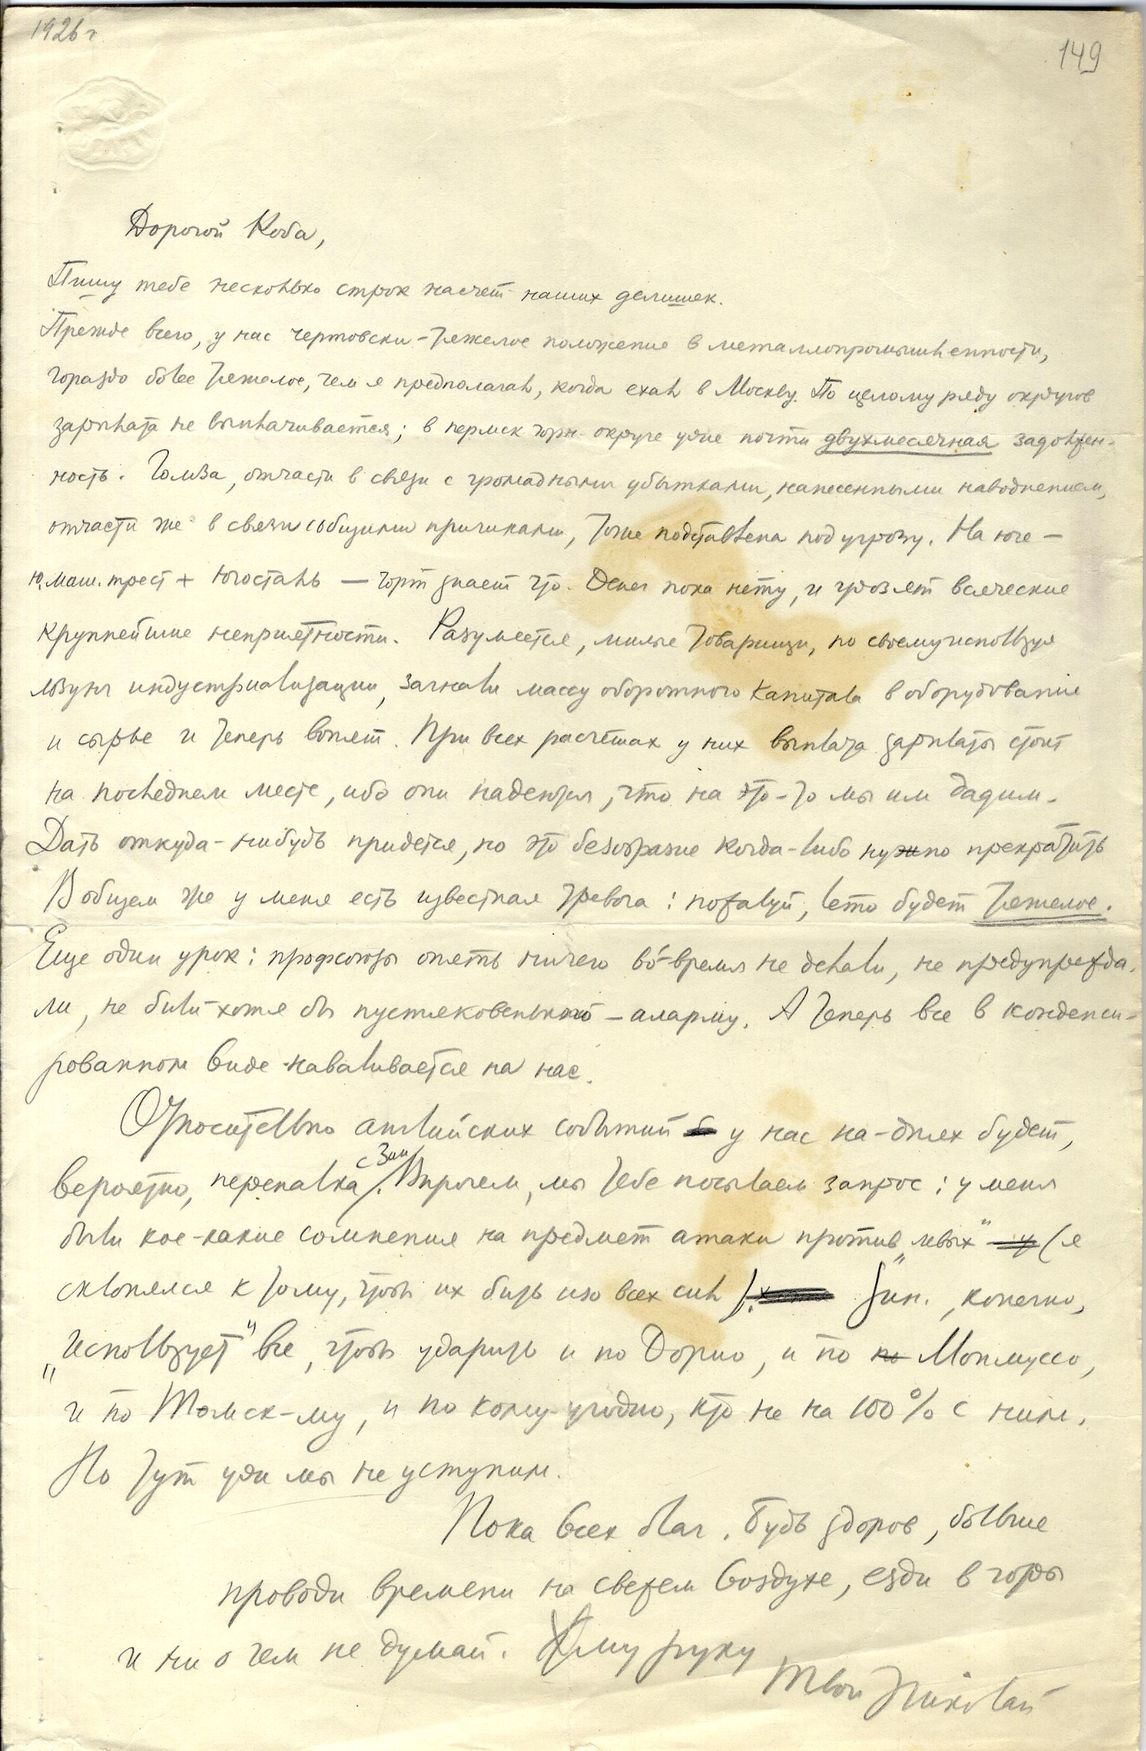 1926 г
149
Дорогой Коба,
Пишу тебе несколько строк насчет наших делишек.
Прежде всего, у нас чертовски-тяжелое положение в металлопромышленности,
гораздо более тяжелое, чем я предполагал, когда ехал в Москву. По целому ряду округов
зарплата не выплачивается; в пермск горн. округе уже почти двухмесячная задолжен-
ность. Гомза, отчасти в связи с громадными убытками, нанесенными наводнением,
отчасти же в связи с общими причинами, тоже подставлена под угрозу. На юге —
Ю.маш.трест + Югосталь — чорт знает что. Денег пока нету, и грозят всяческие
крупнейшие неприятности. Разумеется, милые товарищи, по своему используя
лозунг индустриализации, загнали массу оборотного капитала в оборудование
и сырье и теперь вопят. При всех расчётах у них выплата зарплаты стоит
на последнем месте, ибо они надеются, что на это-то мы им дадим.
Дать откуда-нибудь придется, но это безобразие когда-либо нужно прекратить
В общем же у меня есть известная тревога: пожалуй, лето будет тяжелое.
Еще один урок: профсоюзы опять ничего во-время не делали, не предупрежда-
ли, не били хотя бы пустяковенькой - алярму. А теперь все в конденси-
рованном виде наваливается на нас.
Относительно английских событий у нас на-днях будет,
вероятно, перепалка с Зин. Впрочем, мы тебе посылаем запрос: у меня
были кое-какие сомнения на предмет атаки против „левых" (я
склонялся к тому, чтобы их бить изо всех сил). Зин., конечно,
„использует" все, чтобы ударить и по Дорио, и по Монмуссо,
и по Томск-му, и по кому угодно, кто не на 100% с ним.
Но тут уди мы не уступим.
Пока всех благ. Будь здоров, больше
проводи времени на свежем воздухе, езди в горы
и ни о чем не думай. Жму руку
Твой Николай